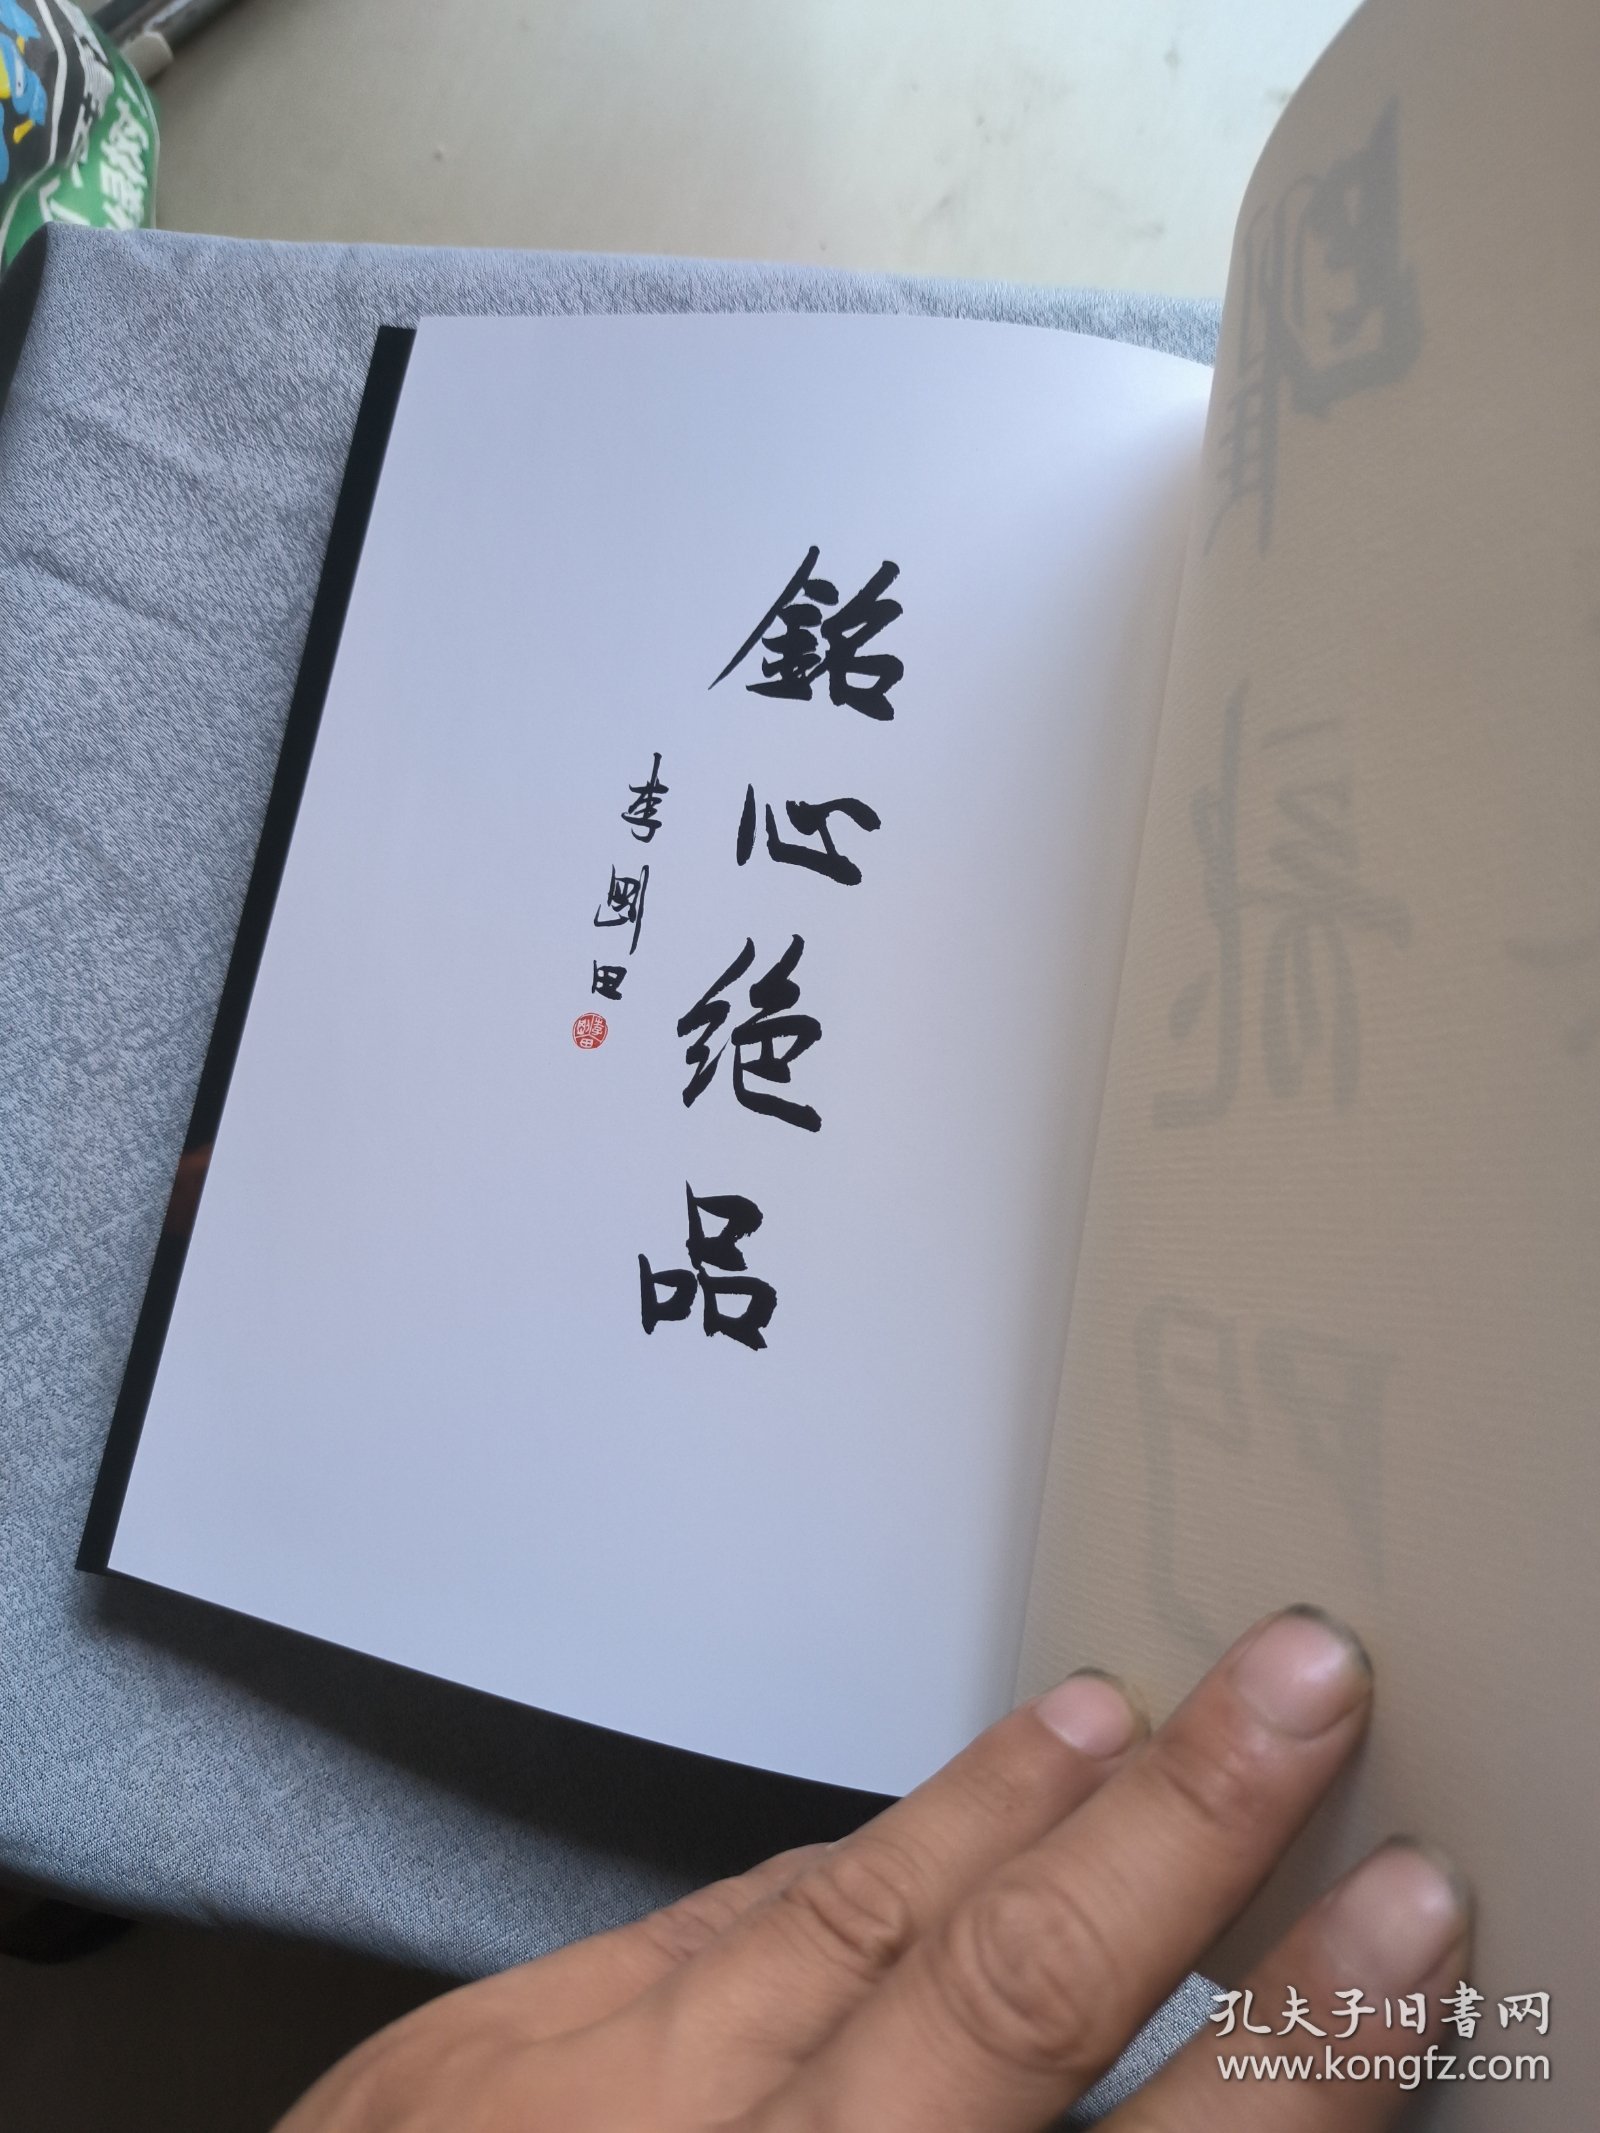 銘心絶品
李剛田
孔夫子旧書网
www.kongfz.com